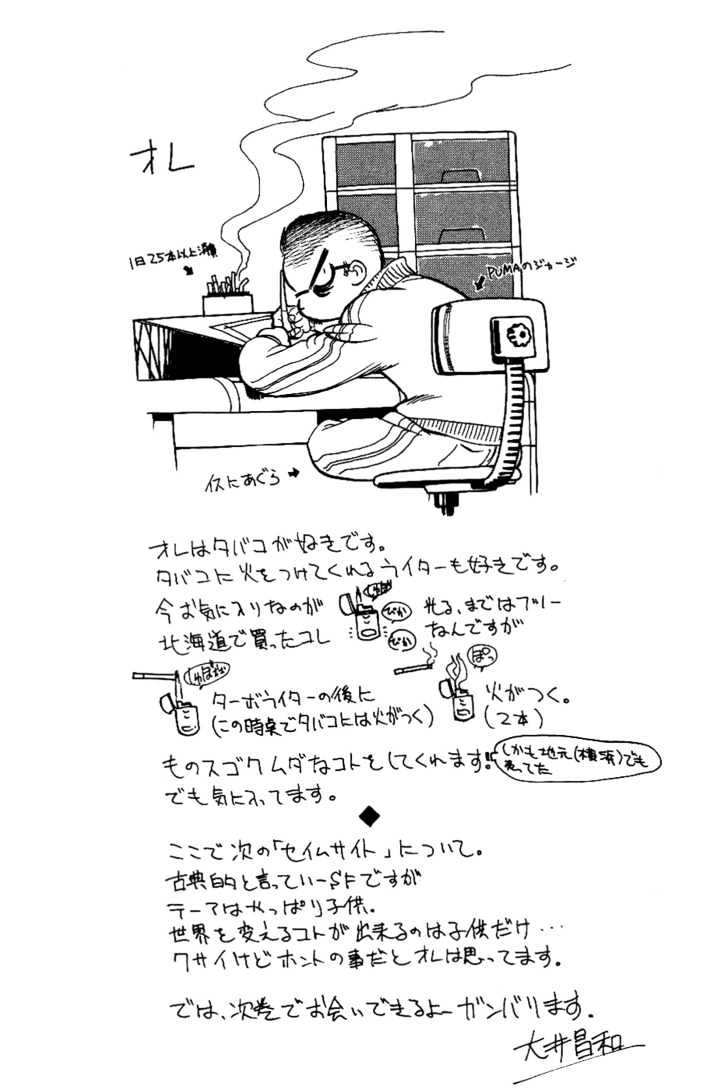 オレ
1日25本以上消費
PUMAのジャージ
イスにあぐら
オレはタバコが好きです。
タバコに火をつけてくれるライターも好きです。
今お気に入りなのが
北海道で買ったコレ
ぴか
ぴか
光る、まではフツー
なんですが
ターボライターの後に
(この時点でタバコには火がつく)
ぽっ
火がつく。
(2本)
ものスゴクムダなコトをしてくれます!!
しかも地元(横浜)でも
売ってた
でも気に入ってます。
ここで次の「セイムサイト」について。
古典的と言っていーSFですが
テーマはやっぱり子供。
世界を変えるコトが出来るのは子供だけ…
クサイけどホントの事だとオレは思ってます。
では、次巻でお会いできるよーガンバります。
大井昌和